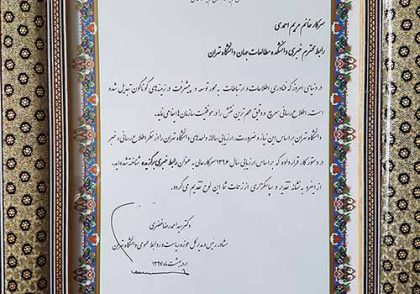 سرکار خانم مریم احمدی
رابط محترم خبری دانشکده مطالعات جهان دانشگاه تهران
در دنیای امروز که فناوری اطلاعات و ارتباطات به محور توسعه و پیشرفت در زمینه‌های گوناگون تبدیل شده
است، اطلاع رسانی سریع و دقیق مهم ترین نقش را در موفقیت سازمان‌ها ایفا می کند.
دانشگاه تهران بر اساس این نیاز و ضرورت، ارزیابی سالانه واحدهای دانشگاه تهران را از نظر اطلاع رسانی و خبر
در دستور کار قرار داده که بر اساس ارزیابی سال ۱۳۹۶ سرکارعالی به عنوان رابط خبری برگزیده شناخته شده‌اید.
از اینرو به نشانه تقدیر و سپاسگزاری از زحمات شما این لوح تقدیم می گردد.
دکتر سید احمدرضا خضری
مشاور رییس و مدیر کل حوزه ریاست و روابط عمومی دانشگاه تهران
اردیبهشت ماه ۱۳۹۷